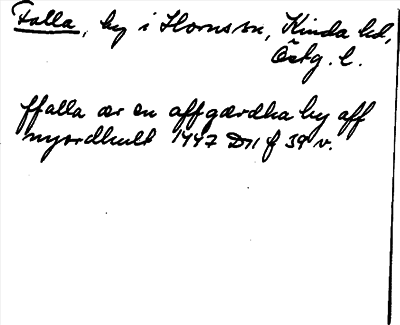 Falla, by i Horns sn, Kinda hd,
Östg. l.
ffalla ær en affgærdha by aff
myordhult 1447 D 11 f 39 v.